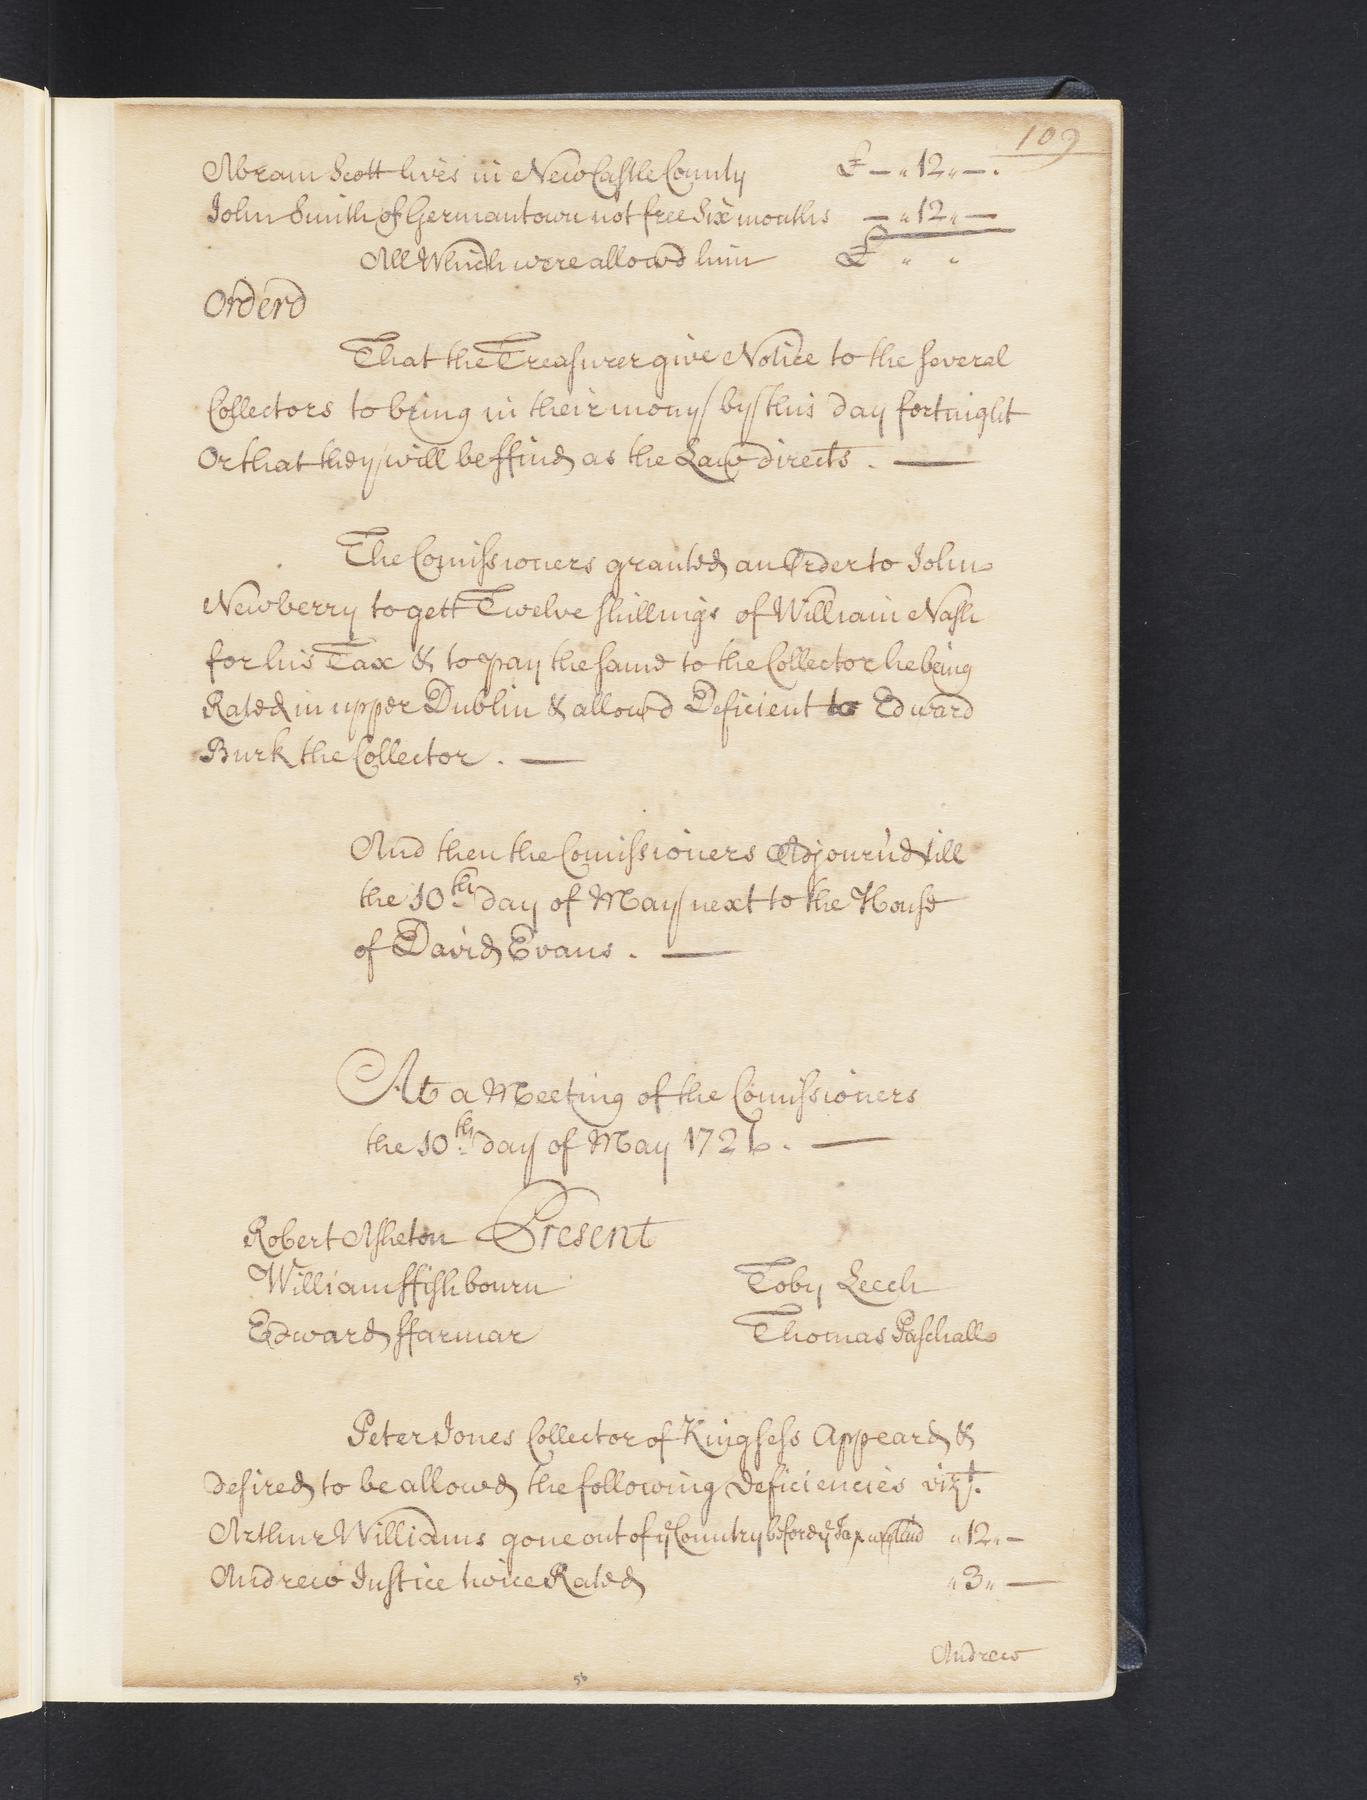 109
Abram Scott lives in New Castle County £ — " 12 " — .
John Smith of Germantown not free Six months — " 12 " —
All Which were allowd him £ " "
Orderd
That the Treasurer give Notice to the several
Collectors to bring in their mony by this day fortnight
Or that they will be ffined as the Law directs . —
The Comissioners granted an Order to John
Newberry to gett Twelve shillings of William Nash
for his Tax & to pay the same to the Collector he being
Rated in upper Dublin & allowd Deficient to Edward
Burk the Collector . —
And then the Comissioners Adjourn'd till
the 10th day of May next to the House
of David Evans . —
At a Meeting of the Comissioners
the 10th day of May 1726 . —
Robert Asheton Present
William ffishbourn Toby Leech
Edward ffarmar Thomas Paschall
Peter Jones Collector of Kingsess Appeard &
desired to be allowed the following Deficiencies vizt.
Arthur Williams gone out of ye Country before ye Tax was laid " 12 " —
Andrew Justice twice Rated " 3 " —
Andrew
56